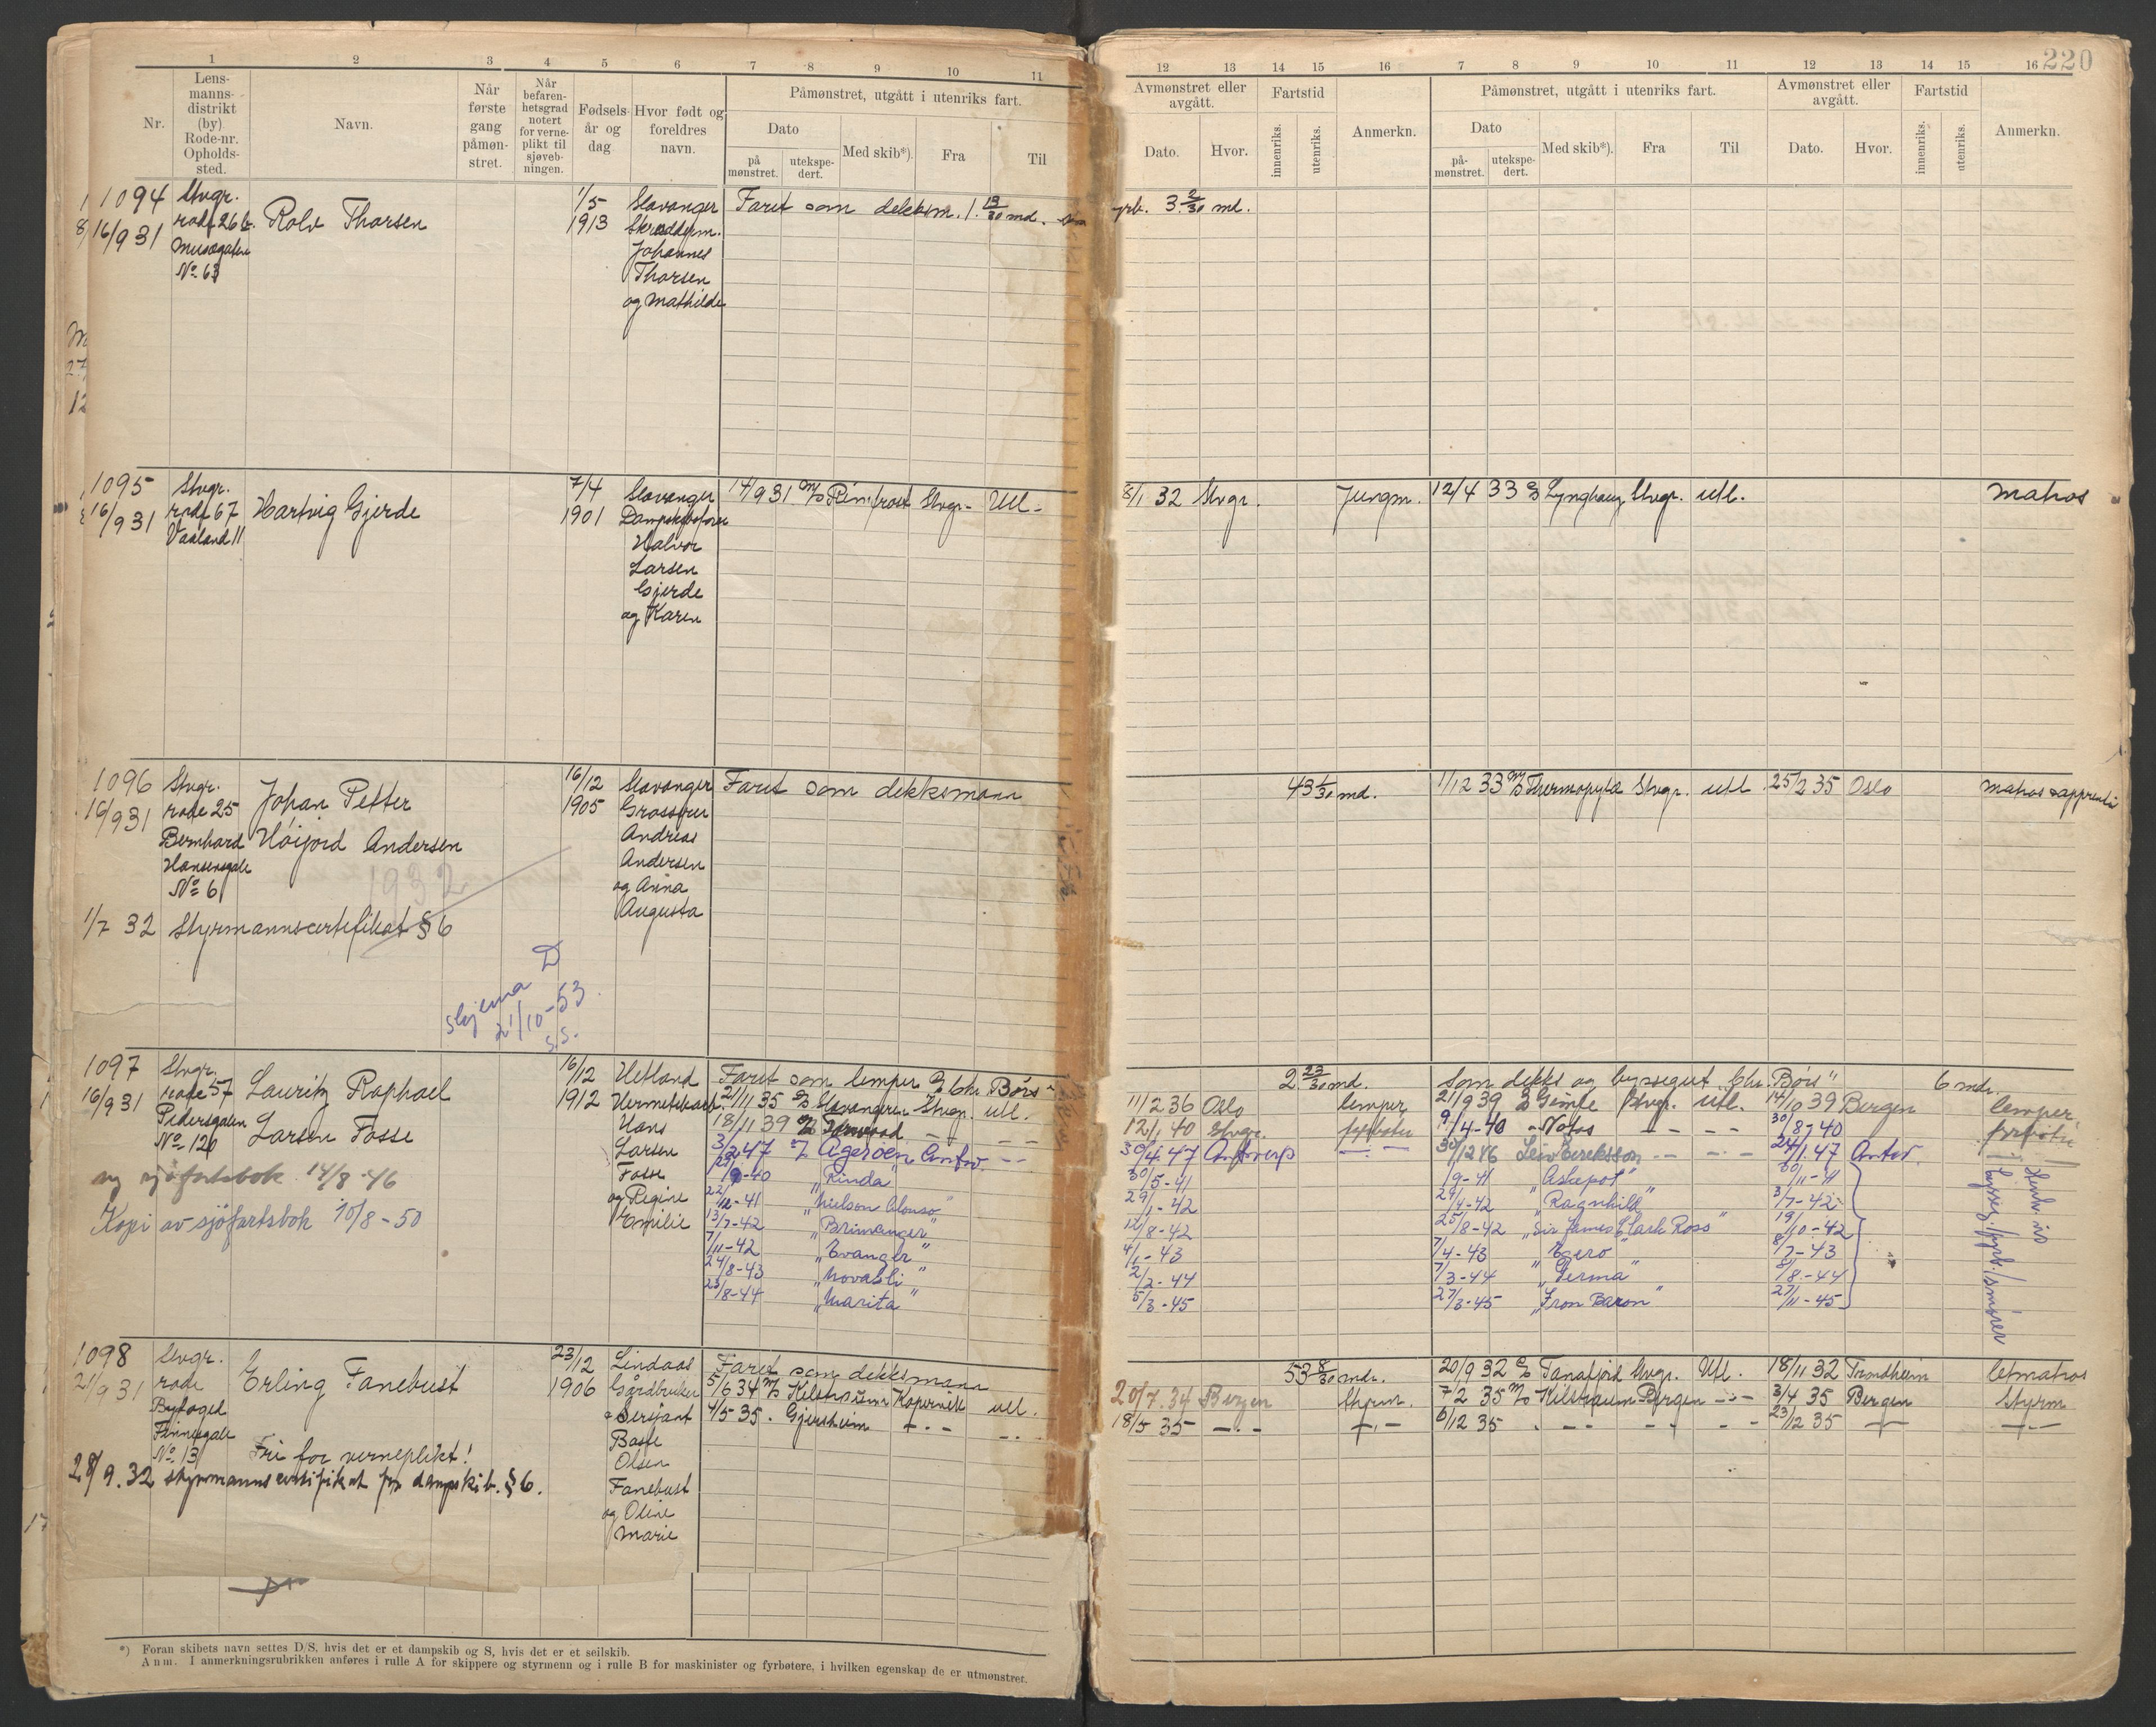 220
1 2 3 4 5 6 7 8 9 10 11
12 13 14 15 16 7 8 9 10 11 12 13 14 15 16
Nr.
Lens-
manns-
distrikt
(by)
Rode-nr.
Opholds-
sted.
Navn.
Når
første
gang
påmøn-
stret.
Når
befaren-
hetsgrad
notert
for verne-
plikt til
sjøveb-
ningen.
Fødsels-
år og
dag
Hvor født og
foreldres
navn.
Påmønstret, utgått i utenriks fart.
Dato
på
mønstret.
utekspe-
dert.
Med skib*).
Fra
Til
Avmønstret eller
avgått.
Dato.
Hvor.
Fartstid
innenriks.
utenriks.
Anmerkn.
Påmønstret, utgått i utenriks fart.
Dato
på-
mønstret.
utekspe-
dert.
Med skib*).
Fra
Til
Avmønstret eller
avgått.
Dato.
Hvor.
Fartstid
innenriks.
utenriks.
Anmerkn.
1094
16/9 31
Stvgr.
rode 26 b.
Musegaten
No 63
Rolv Thorsen
1/5
1913
Stavanger
Skredderm.
Johannes
Thorsen
og Mathilde
Faret som dekksm. 1 13/30 md. som fyrb. 3 2/30 md.
1095
16/9 31
Stvgr.
rode 67
Vaaland 11
Hartvig Gjerde
7/4
1901
Stavanger
Dampskibsfører
Halvor
Larsen
Gjerde
og Karen
14/9 31 M/S Rimfrost Stvgr. Utl.
8/1 32 Stvgr. Jungm. 12/4 33 D/S Lynghaug Stvgr. utl. Matros
1096
16/9 31
Stvgr.
rode 25
Bernhard
Hansensgate
No 6
Johan Petter
Høijord Andersen
1932
16/12
1905
Stavanger
Grosserer
Andreas
Andersen
og Anna
Augusta
Faret som dekksmann 43 1/30 md. 1/12 33 M/S Thermopylæ Stvgr. utl 25/2 35 Oslo matros
1/7 32 Styrmannscertifikat § 6
skjema D
21/10-53
S.S.
1097
16/9 31
Stvgr.
rode 57
Pedersgaten
No 120
Lauritz Raphael
Larsen Fosse
16/12
1912
Hetland
Hermetikarb.
Hans
Larsen
Fosse
og Regine
Emilie
ny sjøfartsbok 14/8-46
Kopi av sjøfartsbok 10/8-50
Faret som lemper D/S Chr. Børs 2 23/30 md. Som dekks og byssegutt "Chr. Børs" 6 mdr.
21/11 35 D/S Stavangeren Stvgr. utl. 11/2 36 Oslo lemper 21/9 39 D/S Gimle Stvgr. utl. 14/10 39 Bergen lemper
18/11 39 12/1 40 Stvgr. fyrbøter 9/4-40 Notos 30/8-40 fyrbøter
3/2 47 Agerøen Antw. 30/4 47 Antwerp 30/12 46 Leiv Eiriksson 24/1 47 Antw.
"Rinda" 30/5-41 1/9-41 "Askepot" 30/11-41
22/12-41 "Nielson Alonso" 29/1-42 29/4-42 "Ragnhild" 3/7-42
13/7-42 "Brimanger" 12/8-42 25/8-42 "Sir James Clark Ross" 19/10-42
7/11-42 "Evanger" 4/1-43 7/4-43 "Egerø" 8/7-43
24/8-43 "Novasli" 2/2-44 7/3-44 "Germa" 8/8-44
23/8-44 "Marita" 5/3-45 27/3-45 "Iron Baron" 27/11-45
Henh.vis
bysseg./fyrb./smører
1098
21/9 31
Stvgr.
rode
Byfoged
Finnesgate
No 13
Erling Fanebust
Fri for verneplikt!
28/9.32 styrmannscertifikat for dampskib. § 6.
23/12
1906
Lindaas
Gårdbruker
Serijant
Basse
Olsen
Fanebust
og Oline
Marie
Faret som dekksmann 53 8/30 mdr. 20/9 32 D/S Tanafjord Stvgr. Utl. 18/11 32 Trondheim letmatros
5/6 34 M/S Kilstraum Kopervik utl. 20/7.34 Bergen Styrm. 7/2 35 M/S Kilstraum Bergen 3/4 35 Bergen Styrm
4/5 35 Gjersheim 18/5 35 6/12 35 23/12 35
*) Foran skibets navn settes D/S, hvis det er et dampskib og S, hvis det er et seilskib.
Anm. I anmerkningsrubrikken anføres i rulle A for skippere og styrmenn og i rulle B for maskinister og fyrbøtere, i hvilken egenskap de er utmønstret.